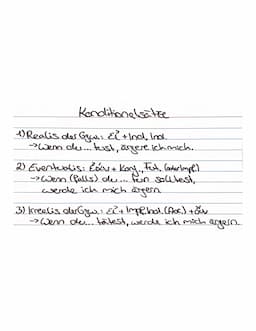 Konditionalsätze
1) Realis der Ggw.: εἰ + Ind. Ind.
→ Wenn du ... tust, ärgere ich mich.
2) Eventualis: ἐάν + Konj., Fut. (oder Impf.)
→ Wenn (falls) du ... tun solltest,
werde ich mich ärgern
3) Irrealis der Ggw.: εἰ + Impf. Ind. (Aor.) + ἄν
→ Wenn du ... tätest, werde ich mich ärgern.